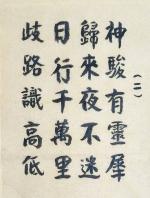 (二)
神駿有靈犀
歸來夜不迷
日行千萬里
歧路識高低